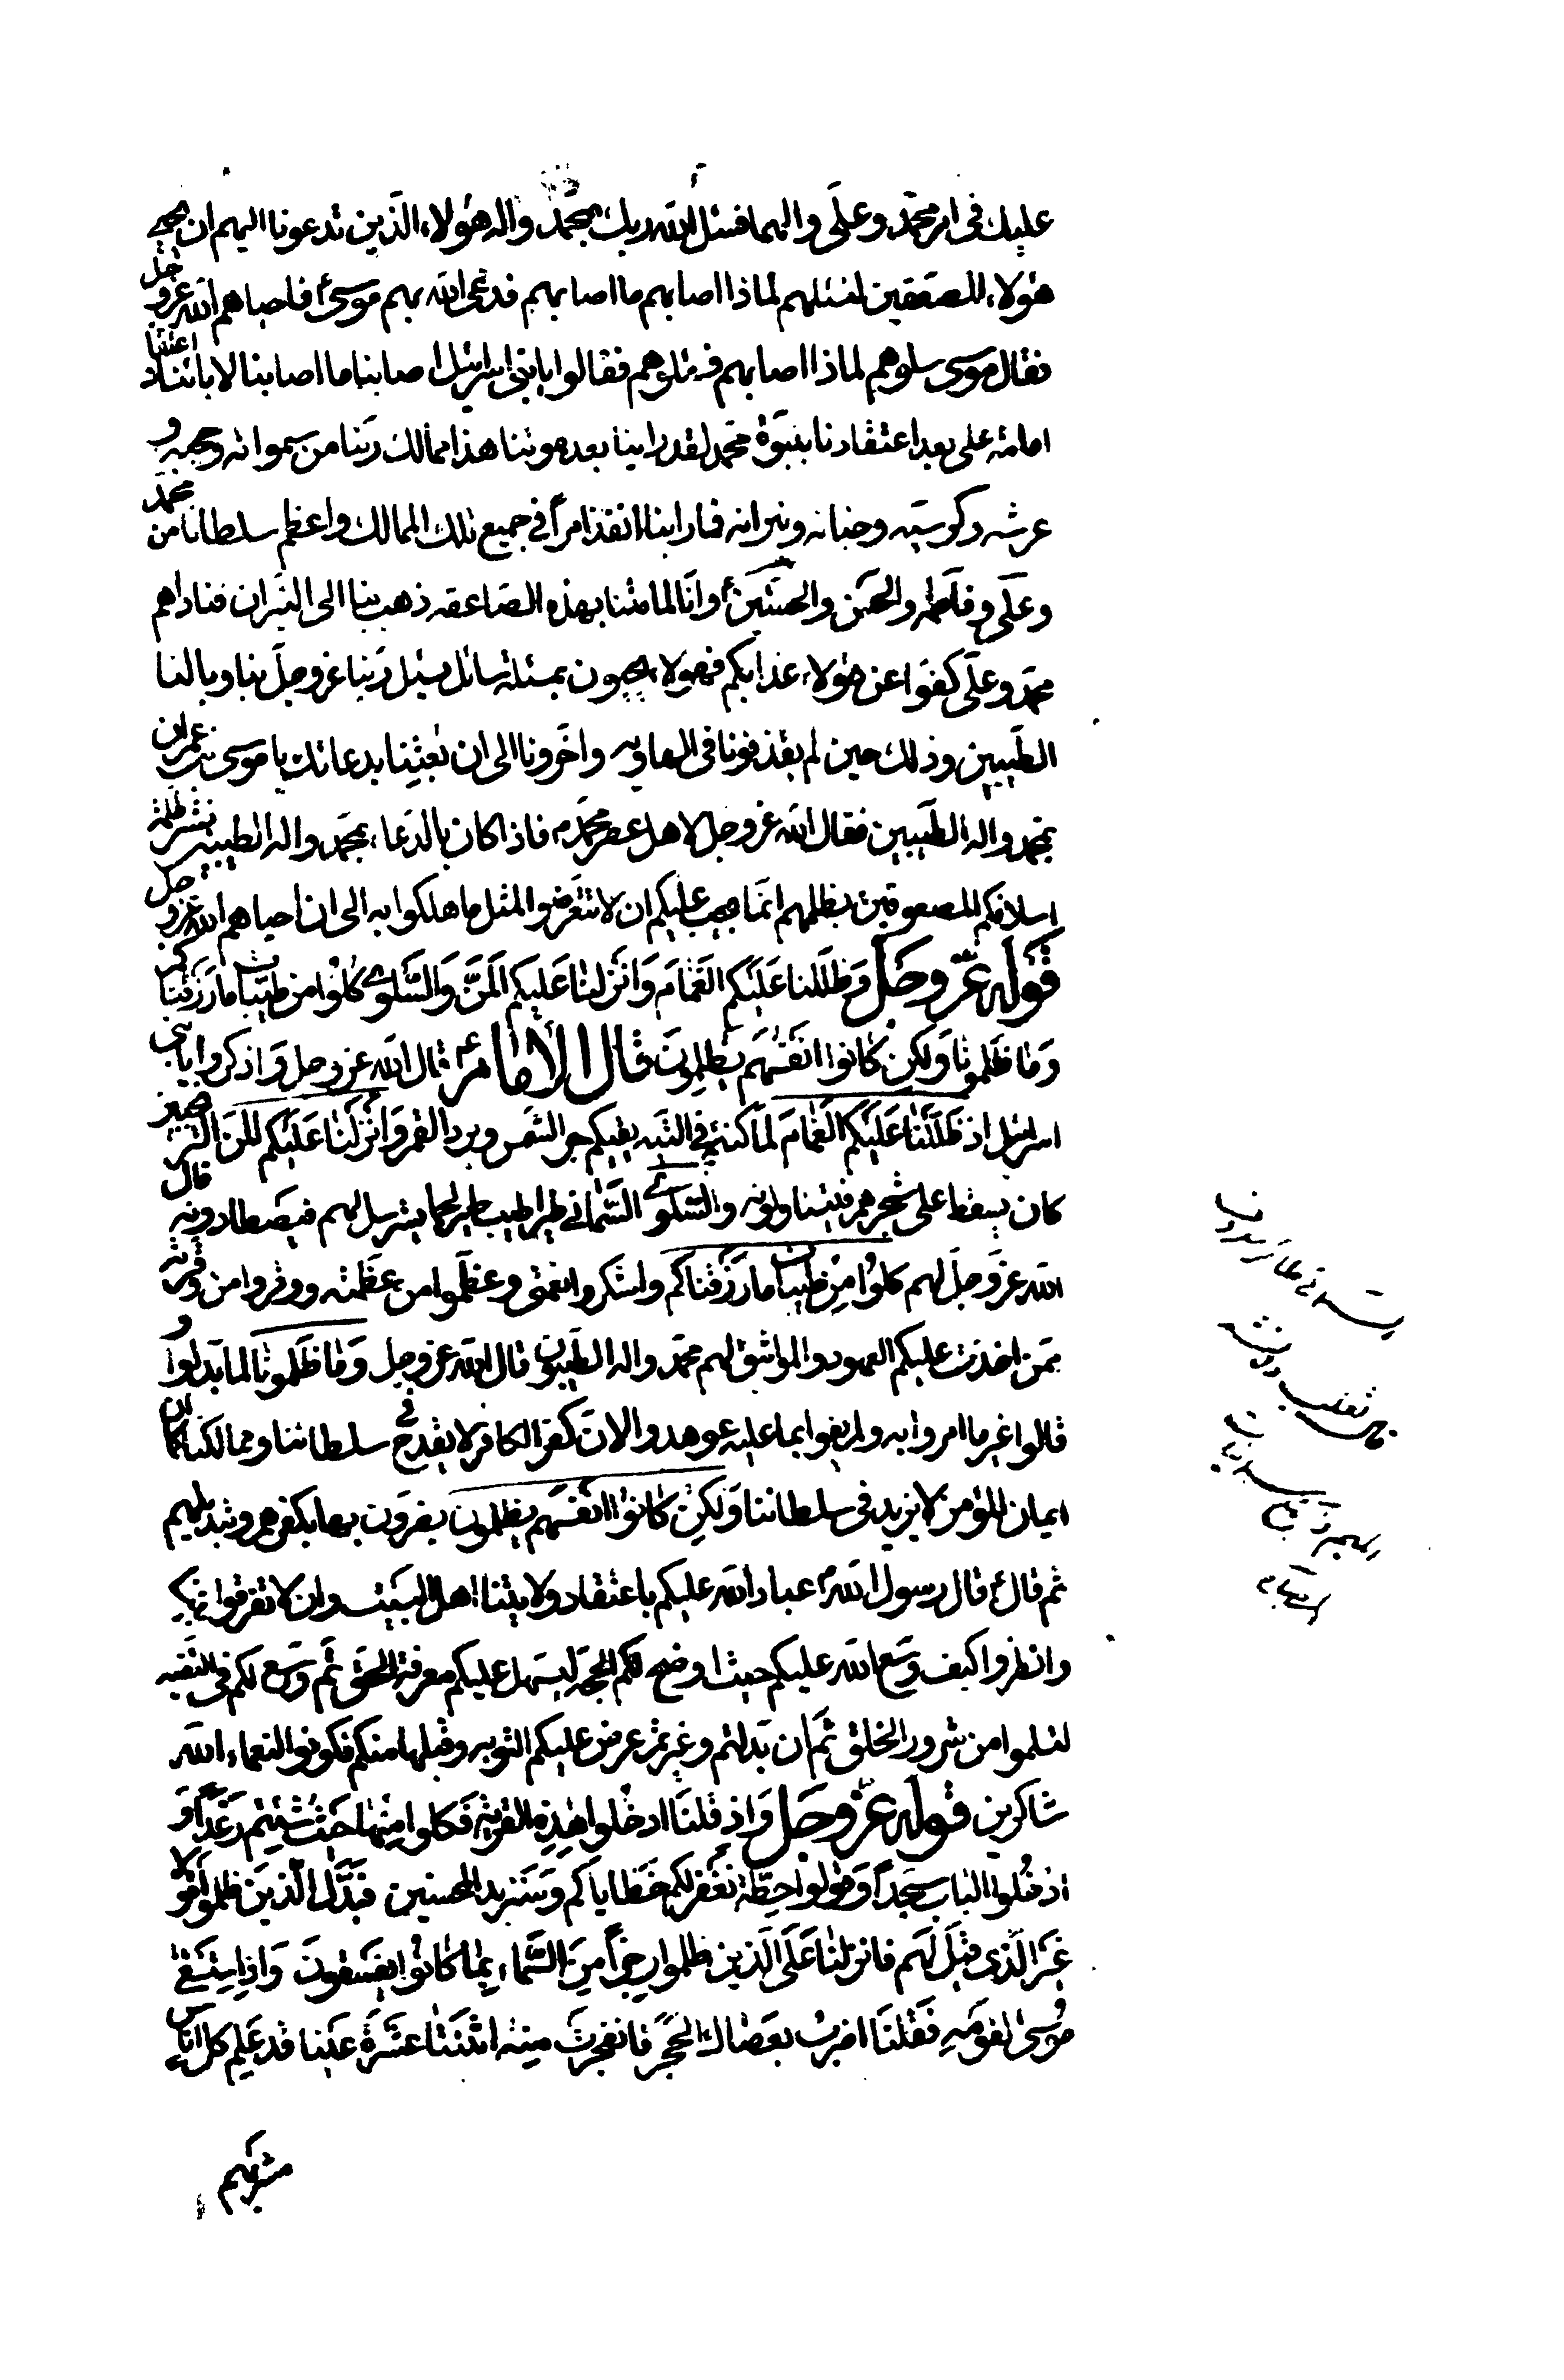 عليك في امر محمد وعلي والهما فسئل الله ربك بمحمد واله هؤلاء الذين تدعونا اليهم ان يحيي
هؤلاء المصعقين لنسئلهم لماذا اصابهم ما اصابهم فدعى الله بهم موسى فاحياهم الله عز وجل
فقال موسى سلوهم لماذا اصابهم فسئلوهم فقالوا يا بني اسرائيل اصابنا ما اصابنا لابائنا اعتقاد
امامة علي بعد اعتقادنا بنبوة محمد لقد راينا بعد موتنا هذا ممالك ربنا من سمواته وحجبه و
عرشه وكرسيه وجنانه ونيرانه فما راينا انفذ امرا في جميع تلك الممالك واعظم سلطانا من محمد
وعلي وفاطمه والحسن والحسين وانا لما متنا بهذه الصاعقه ذهب بنا الى النيران فناداهم
محمد وعلي كفوا عن هؤلاء عذابكم فهؤلاء يحيون بمسئلة سائل يسئل ربنا عز وجل بنا وبالنا
الطيبين وذلك حين لم يقذفونا في الهاويه واخرونا الى ان بعثنا بدعائك يا موسى بن عمران
بمحمد واله الطيبين فقال الله عز وجل لاهل عصر محمد فاذا كان بالدعاء بمحمد واله الطيبين نشر ظلمة
اسلافكم المصعوقين بظلمهم انما يجب عليكم ان لا تتعرضوا لمثل ما هلكوا به الى ان احياهم الله عز وجل
قوله عز وجل وَظَلَّلنا عَلَيكم الغَمامَ وَانزلنا عَليكم المَنَّ وَالسَّلوى كُلوا من طيبات ما رَزقناكم
وَما ظَلمونا وَلكن كانوا انفسَهم يَظلِمونَ قال الامام قال الله عز وجل واذكروا يا بني
اسرائيل اذ ظَلَّلنا عَلَيكم الغَمامَ لما كنتم في التيه يقيكم حر الشمس وبرد القمر وَانزلنا عَليكم المن الترنجبين
كان يسقط على شجرهم فيتناولونه والسلوى السماني طير اطيب طير لحما يسترسل لهم فيصطادونه قال
الله عز وجل لهم كلوا مِن طيبات ما رَزقناكم واشكروا نعمتي وعظموا من عظمته ووقروا من وقرته
ممن اخذت عليكم العهود والمواثيق لهم محمد واله الطيبون قال الله عز وجل وَما ظَلمونا لما بدلوا و
قالوا غير ما امروا به ولم يفوا بما عليه عوهدوا لان كفر الكافر لا يقدح في سلطاننا وممالكنا كما ان
ايمان المؤمن لا يزيد في سلطاننا وَلكِن كانوا انفسَهم يظلمون يضرون بها بكفرهم وتبديلهم
ثم قال قال رسول الله عباد الله عليكم باعتقاد ولايتنا اهل البيت وان لا تفرقوا بيننا
وانظروا كيف وسع الله عليكم حيث اوضح لكم الحجه ليسهل عليكم معرفة الحق ثم وسع لكم في التقيه
لتسلموا من شرور الخلق ثم ان بدلتم وغيرتم عرض عليكم التوبه وقبلها منكم فكونوا لنعماء الله
شاكرين قوله عز وجل وَاذ قلنا ادخُلوا هذِه القرية فَكلوا مِنها حَيثُ شِئتم رَغداً وَ
ادخُلوا الباب سجداً وَقولوا حِطّة نغفر لكم خَطاياكم وَسَنزيد المحسنين فبَدَّل الَّذينَ ظلموا قولا
غيرَ الَّذي قيلَ لَهم فانزلنا عَلَى الَّذين ظلموا رِجزاً مِنَ السَّماء بِما كانوا يَفسقونَ وَاذِ استسقى
مُوسى لقومَهِ فَقلنا اضرب بعَصاك الحَجَر فانفجرت مِنه اثنَتا عَشرَةَ عَينا قد عَلِم كل اناس
مشربهم